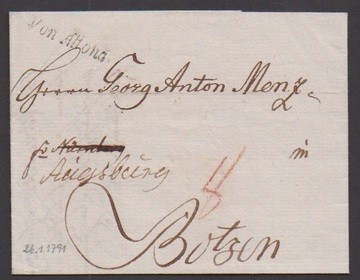 Von Altona.
Herrn Georg Anton Menz
pr Nürnberg in
Augsburg
Botzen
26.1.1791